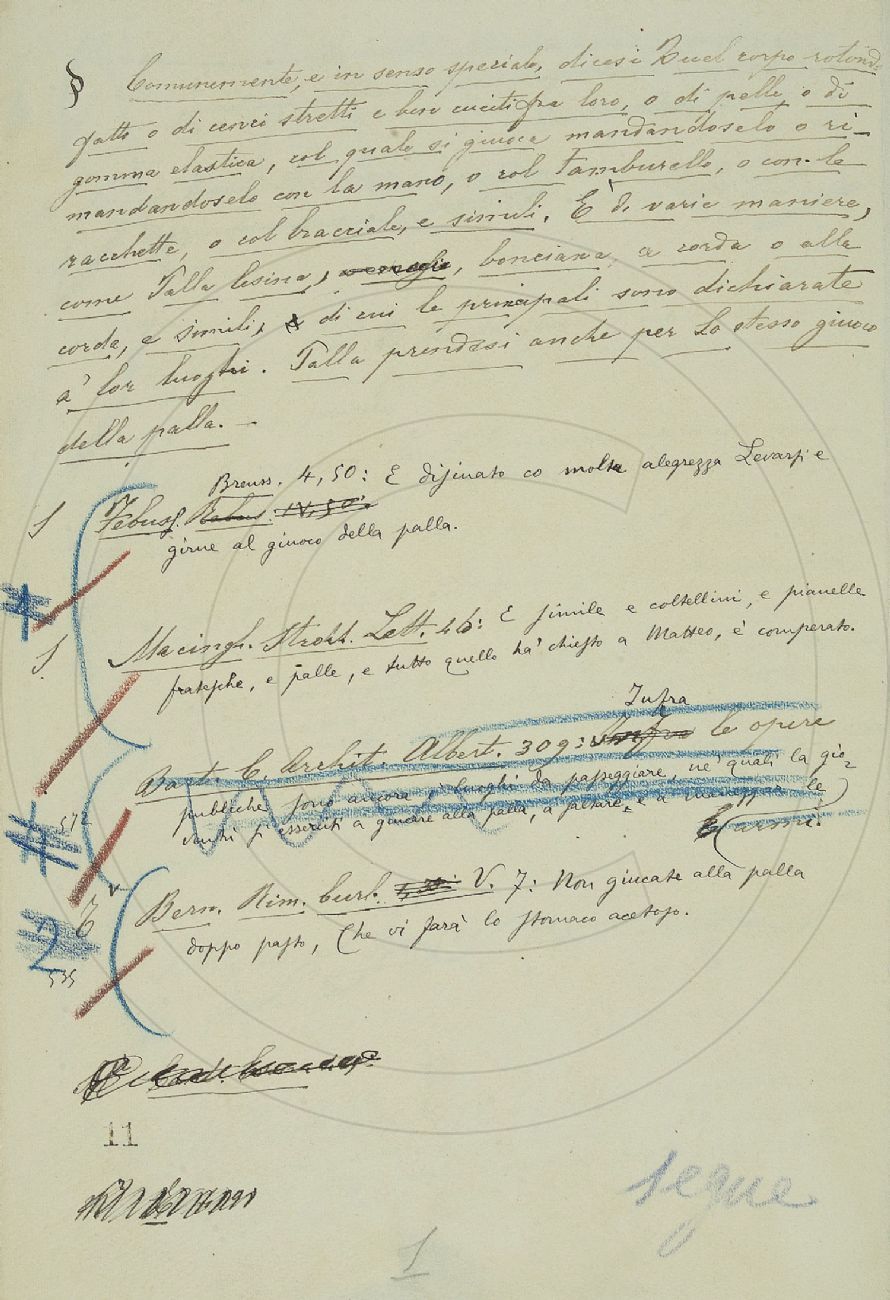 § Comunemente, e in senso speciale, dicesi Quel corpo rotondo
fatto o di cenci stretti e ben cuciti fra loro, o di pelle, o di
gomma elastica, col quale si giuoca mandandoselo o ri-
mandandoselo con la mano, o col Tamburello, o con le
racchette, o col bracciale, e simili. È di varie maniere,
come Palla lesina, bonciana, a corda o alla
corda, e simili, di cui le principali sono dichiarate
a' lor luoghi. Palla prendesi anche per Lo stesso giuoco
della palla. -
Breuss. 4, 50: E disinato co molta alegrezza Levarsi e
Febuss.
girne al giuoco della palla.
Macingh. Strozz. Lett. 46: E simile e coltellini, e pianelle
fratesche, e palle, e tutto quello ha' chiesto a Matteo, è comperato.
Infra
Bart. C. Archit. Albert. 309: le opere
publiche sono ancora i luoghi da passeggiare, ne' quali la gio-
ventù si eserciti a giucare alla palla, a saltare, e a maneggiar le
armi.
57
Bern. Rim. burl. V. 7: Non giucate alla palla
doppo pasto, Che vi farà lo stomaco acetoso.
535
11
segue
1